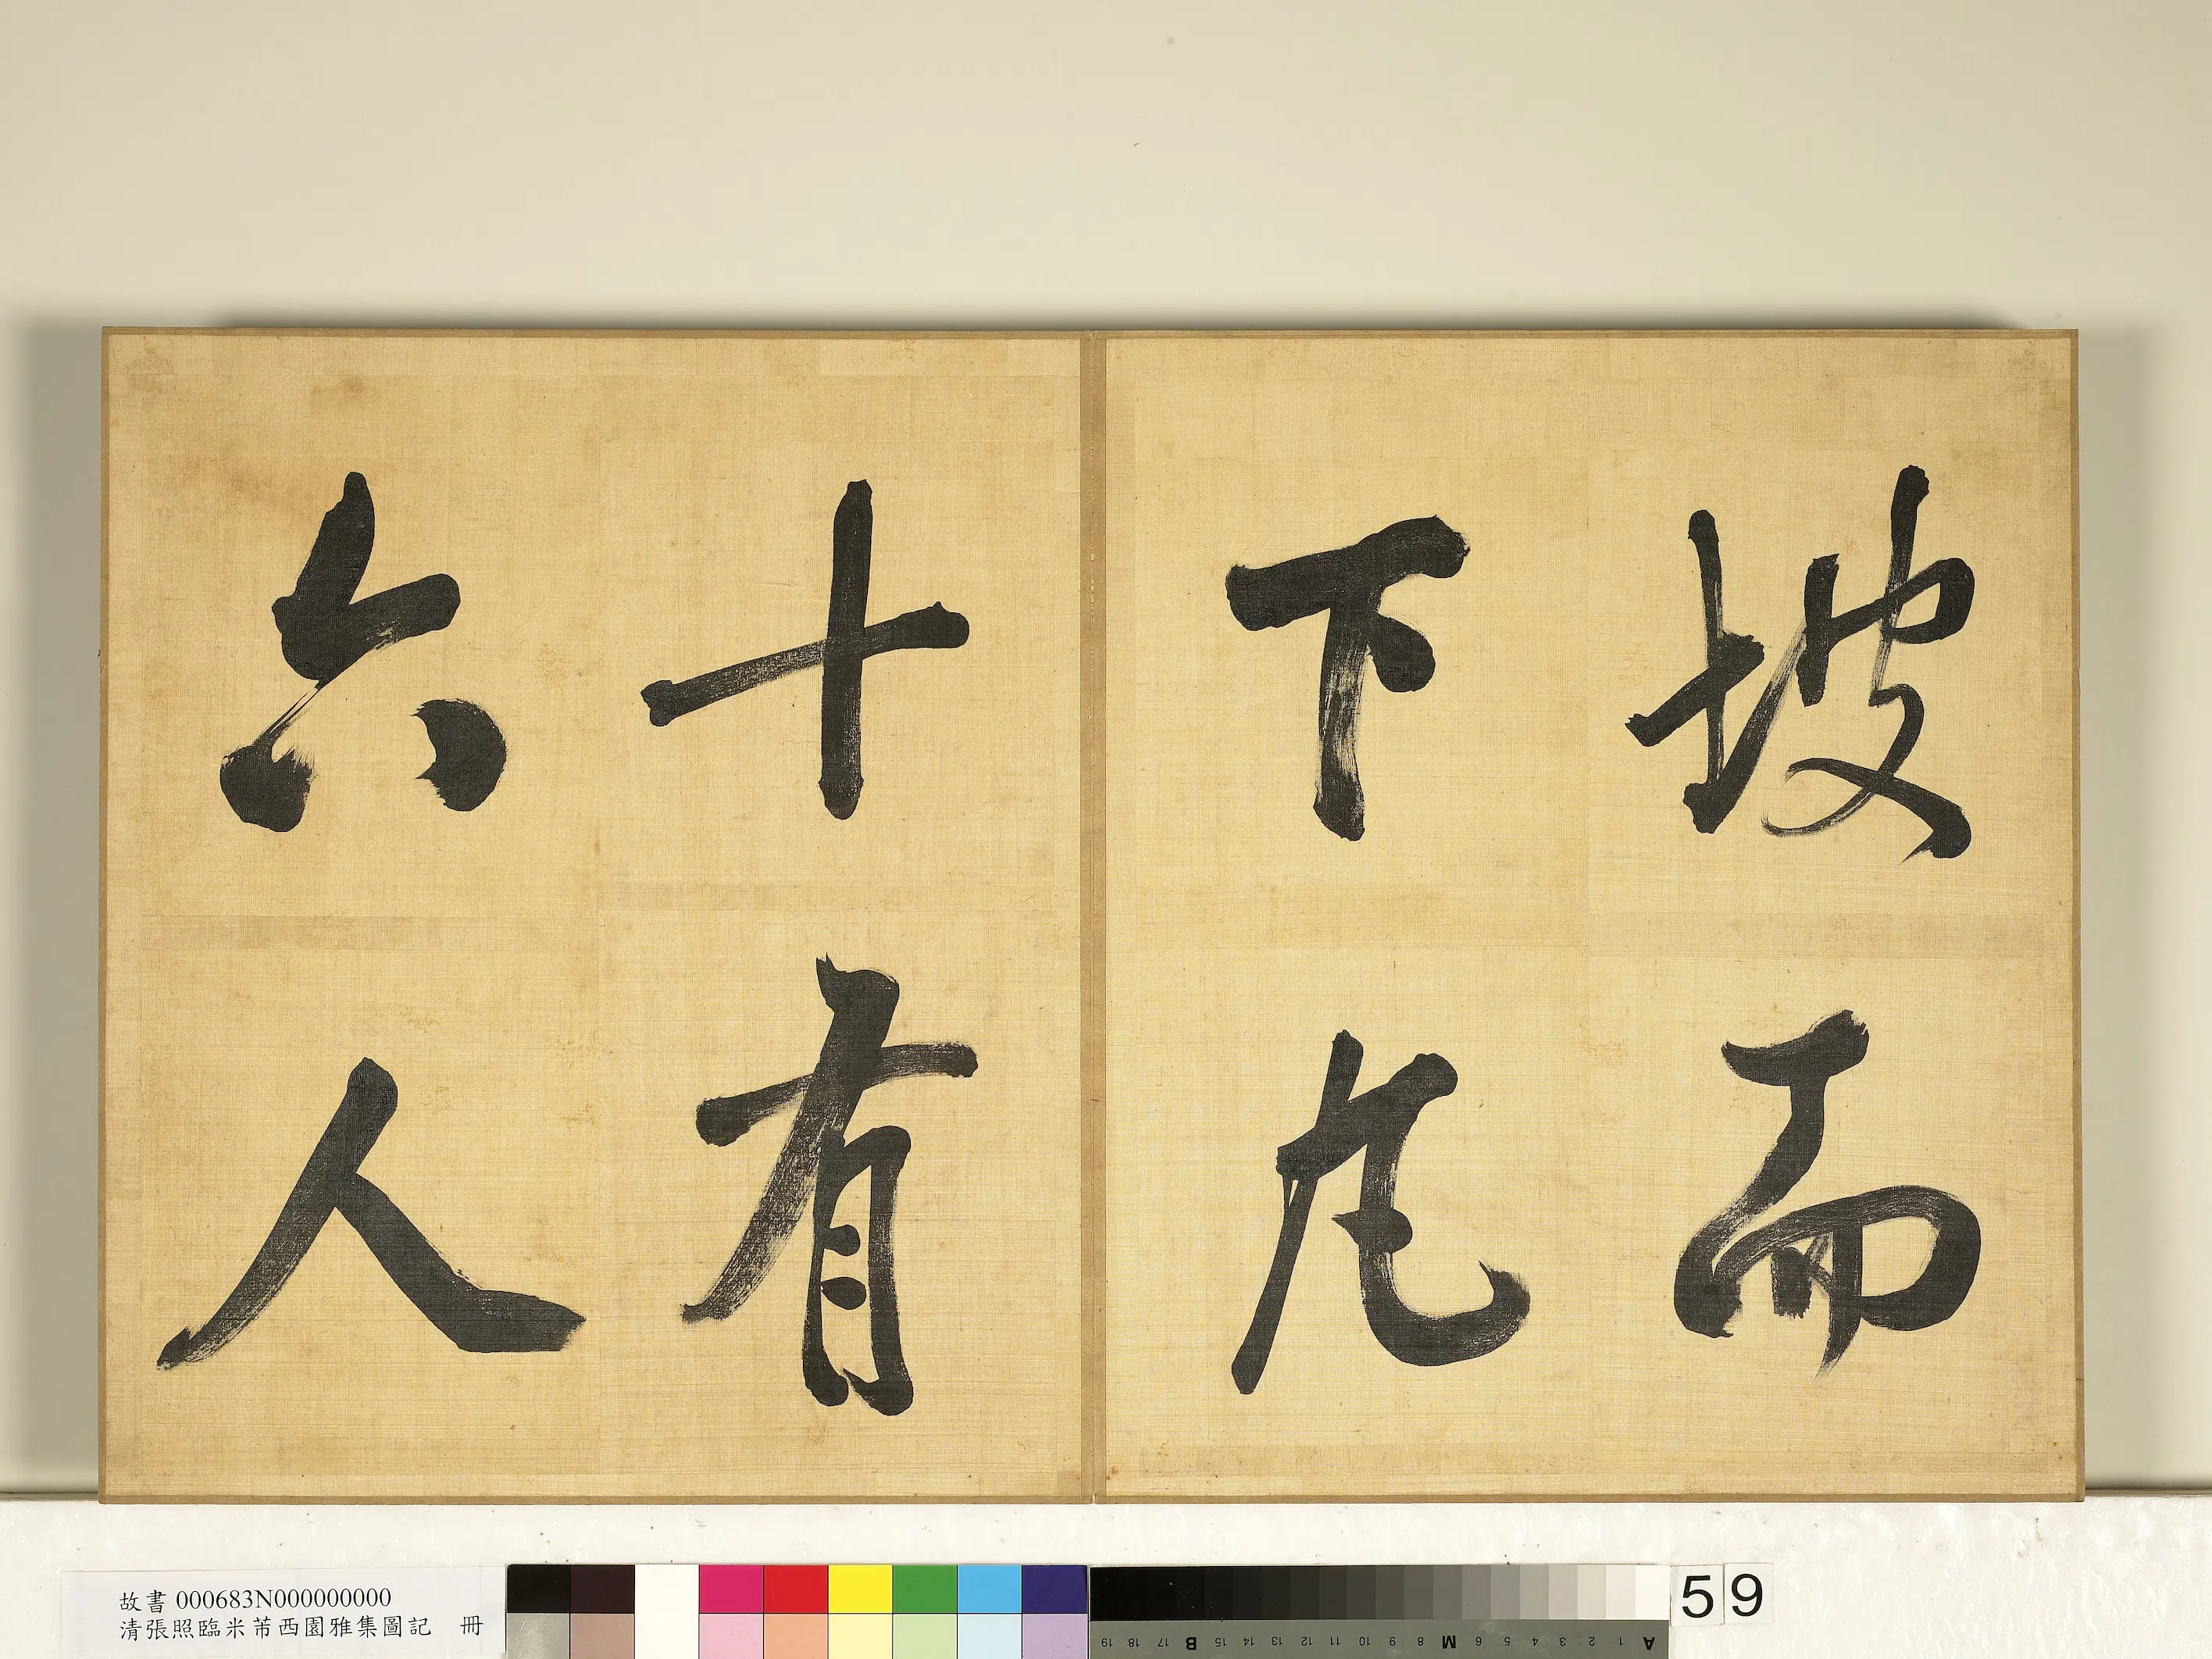 坡而
下凡
十有
六人
故書 000683N000000000
清張照臨米芾西園雅集圖記 冊
59
A 1 2 3 4 5 6 7 M 8 9 10 11 12 13 14 15 B 16 17 18 19